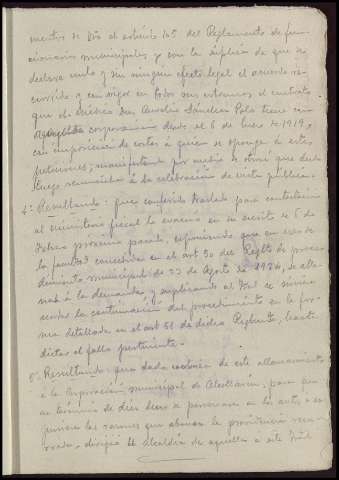 mentos de Vio el artículo 145 del Reglamento de fun
cionarios municipales, y con la súplica de que se
declare nulo y sin ningún efecto legal el acuerdo re-
currido y en vigor en todos sus extremos el contrato
que el médico Don Aurelio Sánchez Polo tiene con
aquella corporación desde el 6 de Enero de 1919,
con imposición de costas a quien se oponga a estas
peticiones; manifestando por medio de otrosí que des
luego renunciaba á la celebración de vista pública.
4º Resultando: que conferido traslado para contestación
al ministerio fiscal la evacuó en su escrito de 6 de
Febrero próximo pasado, exponiendo que en uso de
la facultad concedida en el art 50 del Reglto de proce-
dimiento municipal de 23 de Agosto de 1924, se alla-
naba á la demanda y suplicando al Tral se sirviera
acordar la continuación del procedimiento en la for-
ma detallada en el art 51 de dicho Reglmto, hasta
dictar el fallo pertinente.
5º Resultando: que dada noticia de este allanamiento
á la Corporación municipal de, para que
en término de diez días se personase en los autos, o ex-
pusiera las razones que abonan la providencia recu-
rrada, dirigió la Alcaldía de aquella a este Tral